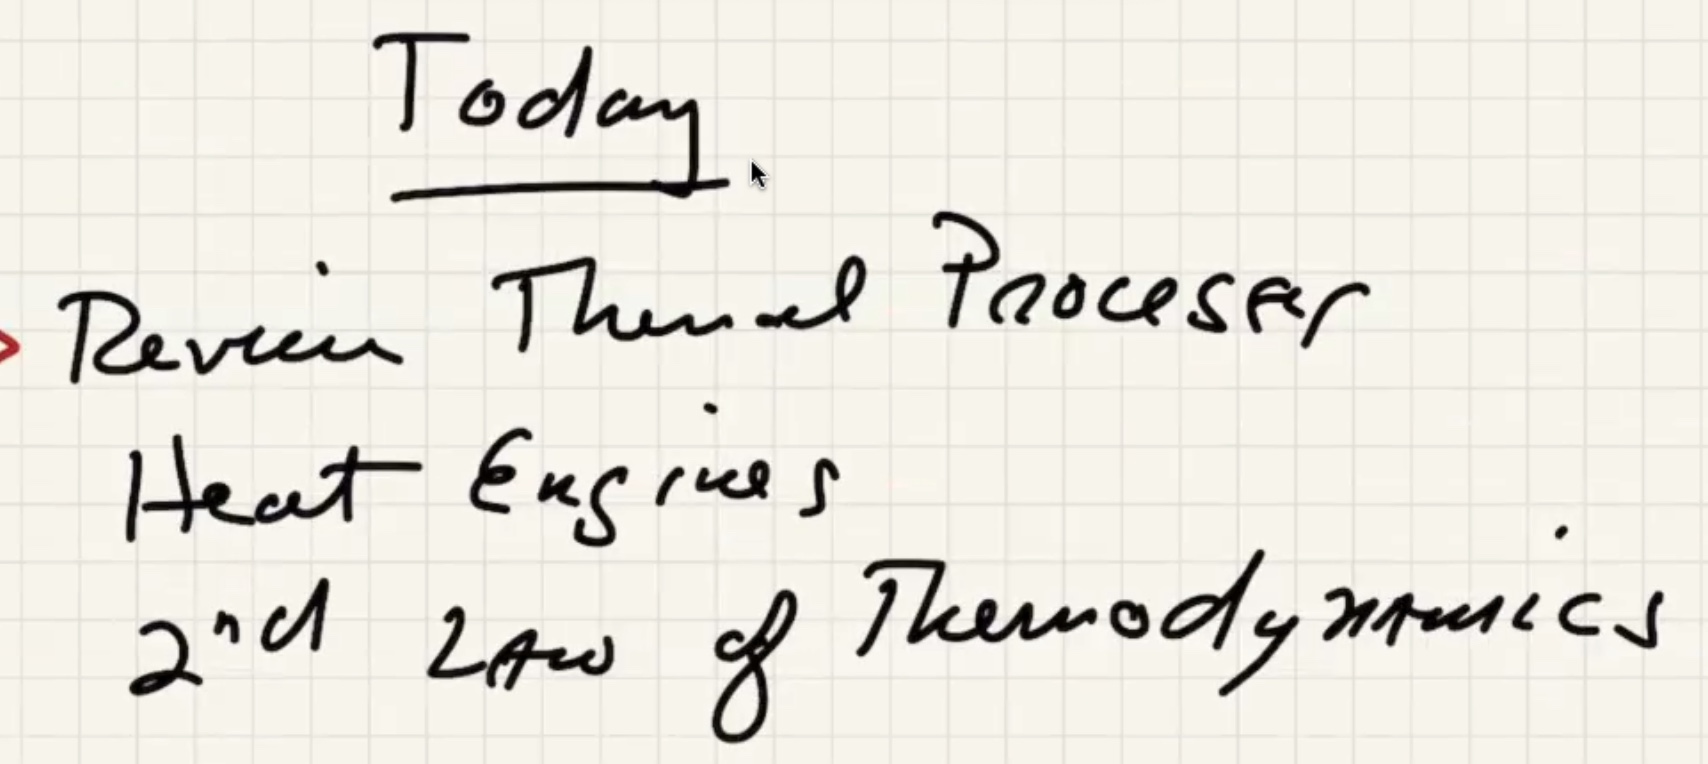 Today
Review Thermal Processes
Heat Engines
2nd Law of Thermodynamics